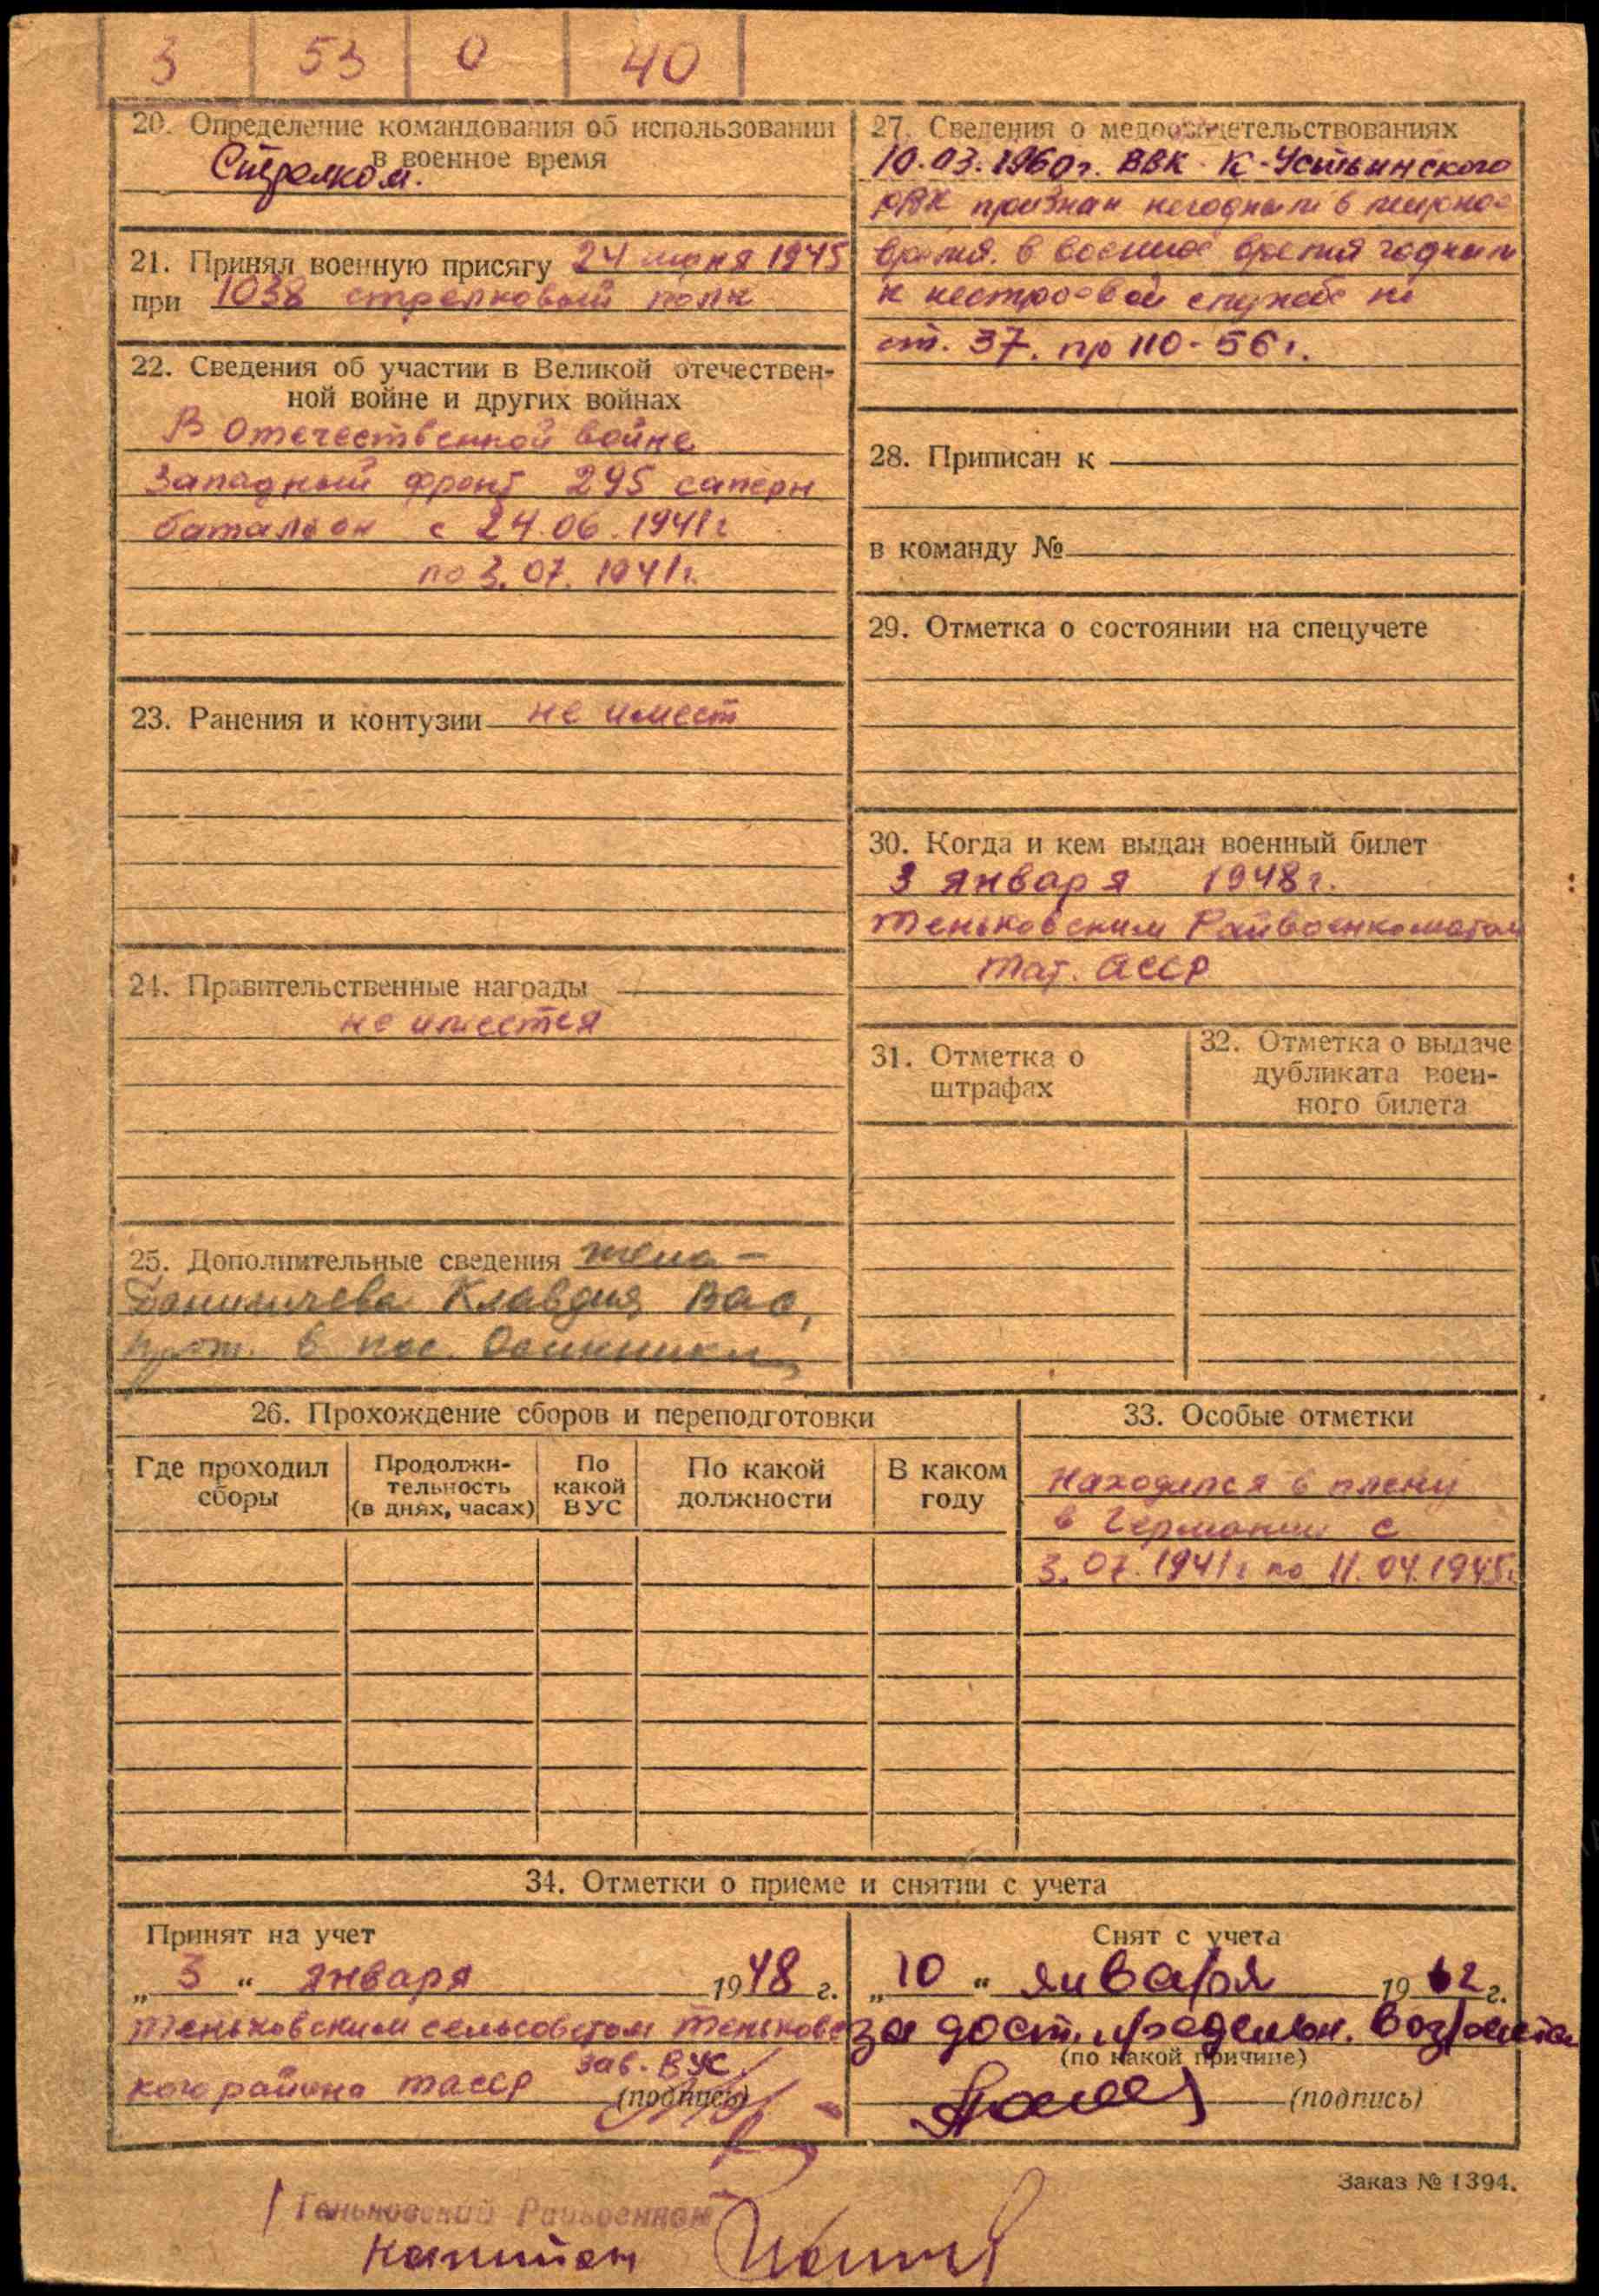 3 53 0 40
20. Определение командования об использовании
в военное время
Стрелком.
21. Принял военную присягу 24 июня 1945
при 1038 стрелковый полк
22. Сведения об участии в Великой отечествен-
ной войне и других войнах
В Отечественной войне
Западный фронт 295 саперн
батальон с 24.06.1941г
по 3.07.1941г.
23. Ранения и контузии не имеет
24. Правительственные награды
не имеется
25. Дополнительные сведения жена –
Клавдия Вас,
в пос. Осинники
27. Сведения о медосвидетельствованиях
10.03.1960г. ВВК К-Устьинского
РВК признан негодным в мирное
время. в военное время годным
к нестроевой службе по
ст. 37. пр 110-56г.
28. Приписан к
в команду №
29. Отметка о состоянии на спецучете
30. Когда и кем выдан военный билет
3 января 1948г.
Теньковским Райвоенкоматом
Тат. АССР
31. Отметка о
штрафах
32. Отметка о выдаче
дубликата воен-
ного билета
26. Прохождение сборов и переподготовки
Где проходил
сборы
Продолжи-
тельность
(в днях, часах)
По
какой
ВУС
По какой
должности
В каком
году
33. Особые отметки
Находился в плену
в Германии с
3.07.1941г по 11.04.1945г.
34. Отметки о приеме и снятии с учета
Принят на учет
„ 3 “ января 1948 г.
Теньковским сельсоветом Теньковс
кого района ТАССР зав. ВУС
(подпись)
Снят с учета
„ 10 “ января 1962 г.
за дост. предельн. возраста
(по какой причине)
(подпись)
Заказ № 1394.
Теньковский Райвоенком
капитан